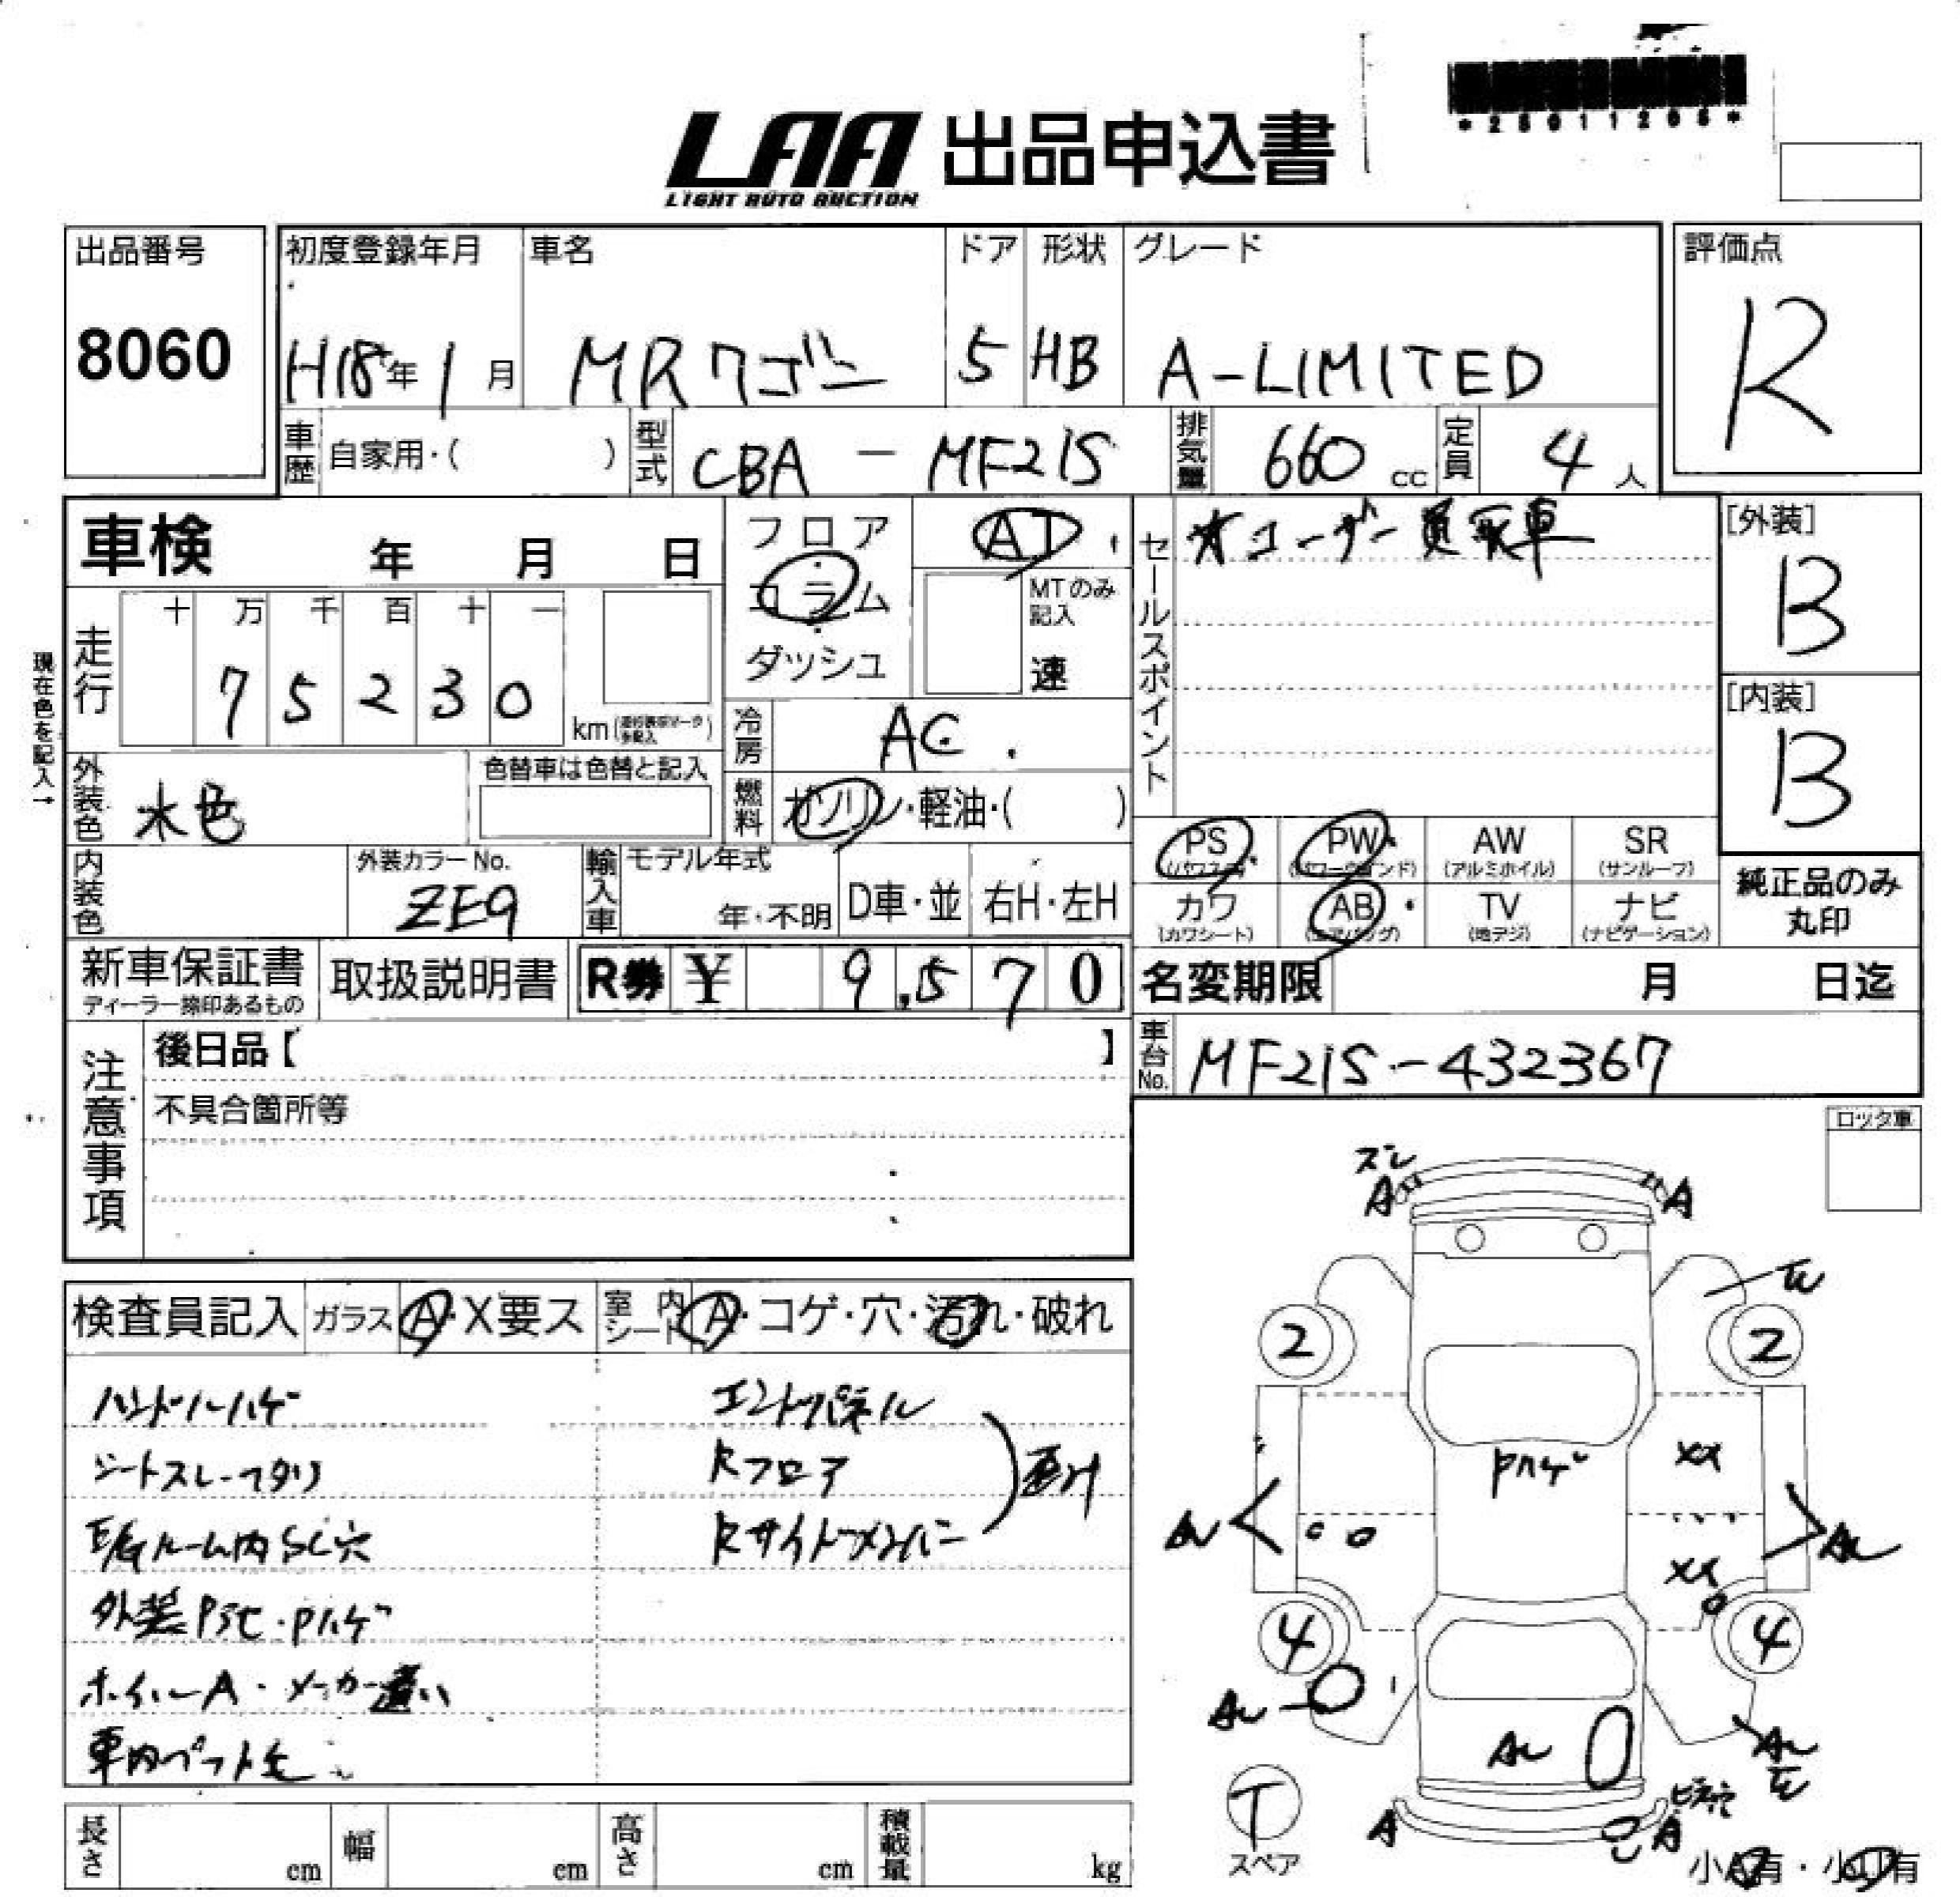 *25011206*
LAA 出品申込書
LIGHT AUTO AUCTION
出品番号
8060
初度登録年月
H18年 1月
車名
MRワゴン
ドア
5
形状
HB
グレード
A-LIMITED
評価点
R
車歴 自家用・( )
型式 CBA - MF21S
排気量 660 cc
定員 4 人
車検 年 月 日
フロア・コラム・ダッシュ
AT
MTのみ記入
速
セールスポイント
ユーザー買取車
[外装]
B
[内装]
B
現在色を記入→
走行
十 万 千 百 十 一
7 5 2 3 0
km
冷房 AC
燃料 ガソリン・軽油・( )
外装色 水色
色替車は色替と記入
内装色
外装カラーNo.
ZE9
輸入車
モデル年式
年・不明
D車・並
右H・左H
PS
PW
(パワーウインド)
AW
(アルミホイル)
SR
(サンルーフ)
カワ
(カワシート)
AB
(エアバッグ)
TV
(地デジ)
ナビ
(ナビゲーション)
純正品のみ
丸印
新車保証書
ディーラー捺印あるもの
取扱説明書
R券 ¥ 9,570
名変期限 月 日迄
車台No. MF21S-432367
注意事項
後日品【 】
不具合箇所等
ロッタ車
検査員記入
ガラス A・X要ス
室内シート A・コゲ・穴・汚れ・破れ
ハンドルハゲ
シートスレ・ヘタリ
E/Gルーム内SC穴
外装Pシミ・Pハゲ
ホイールA・メーカー違い
車内ペット毛
エンドパネル
Rフロア
Rサイドメンバー
ズレ
A
A
2
2
Pハゲ
XX
AU
AU
XX
4
4
AU
AU
AU
T
スペア
A
A
小A有・小U有
長さ cm
幅 cm
高さ cm
積載量 kg